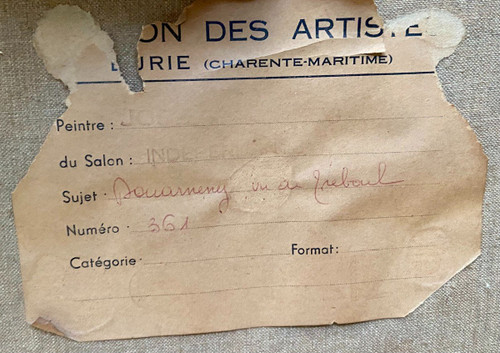 ON DES ARTISTE
URIE (CHARENTE-MARITIME)
Peintre :
du Salon : INDE
Sujet : Douarnenez vu de Tréboul
Numéro : 361
Catégorie Format :